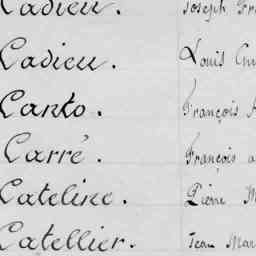 Cadieu. Joseph Fra
Cadieu. Louis Gui
Canto. François A
Carré. François a
Cateline. Pierre M
Catellier. Jean Mar